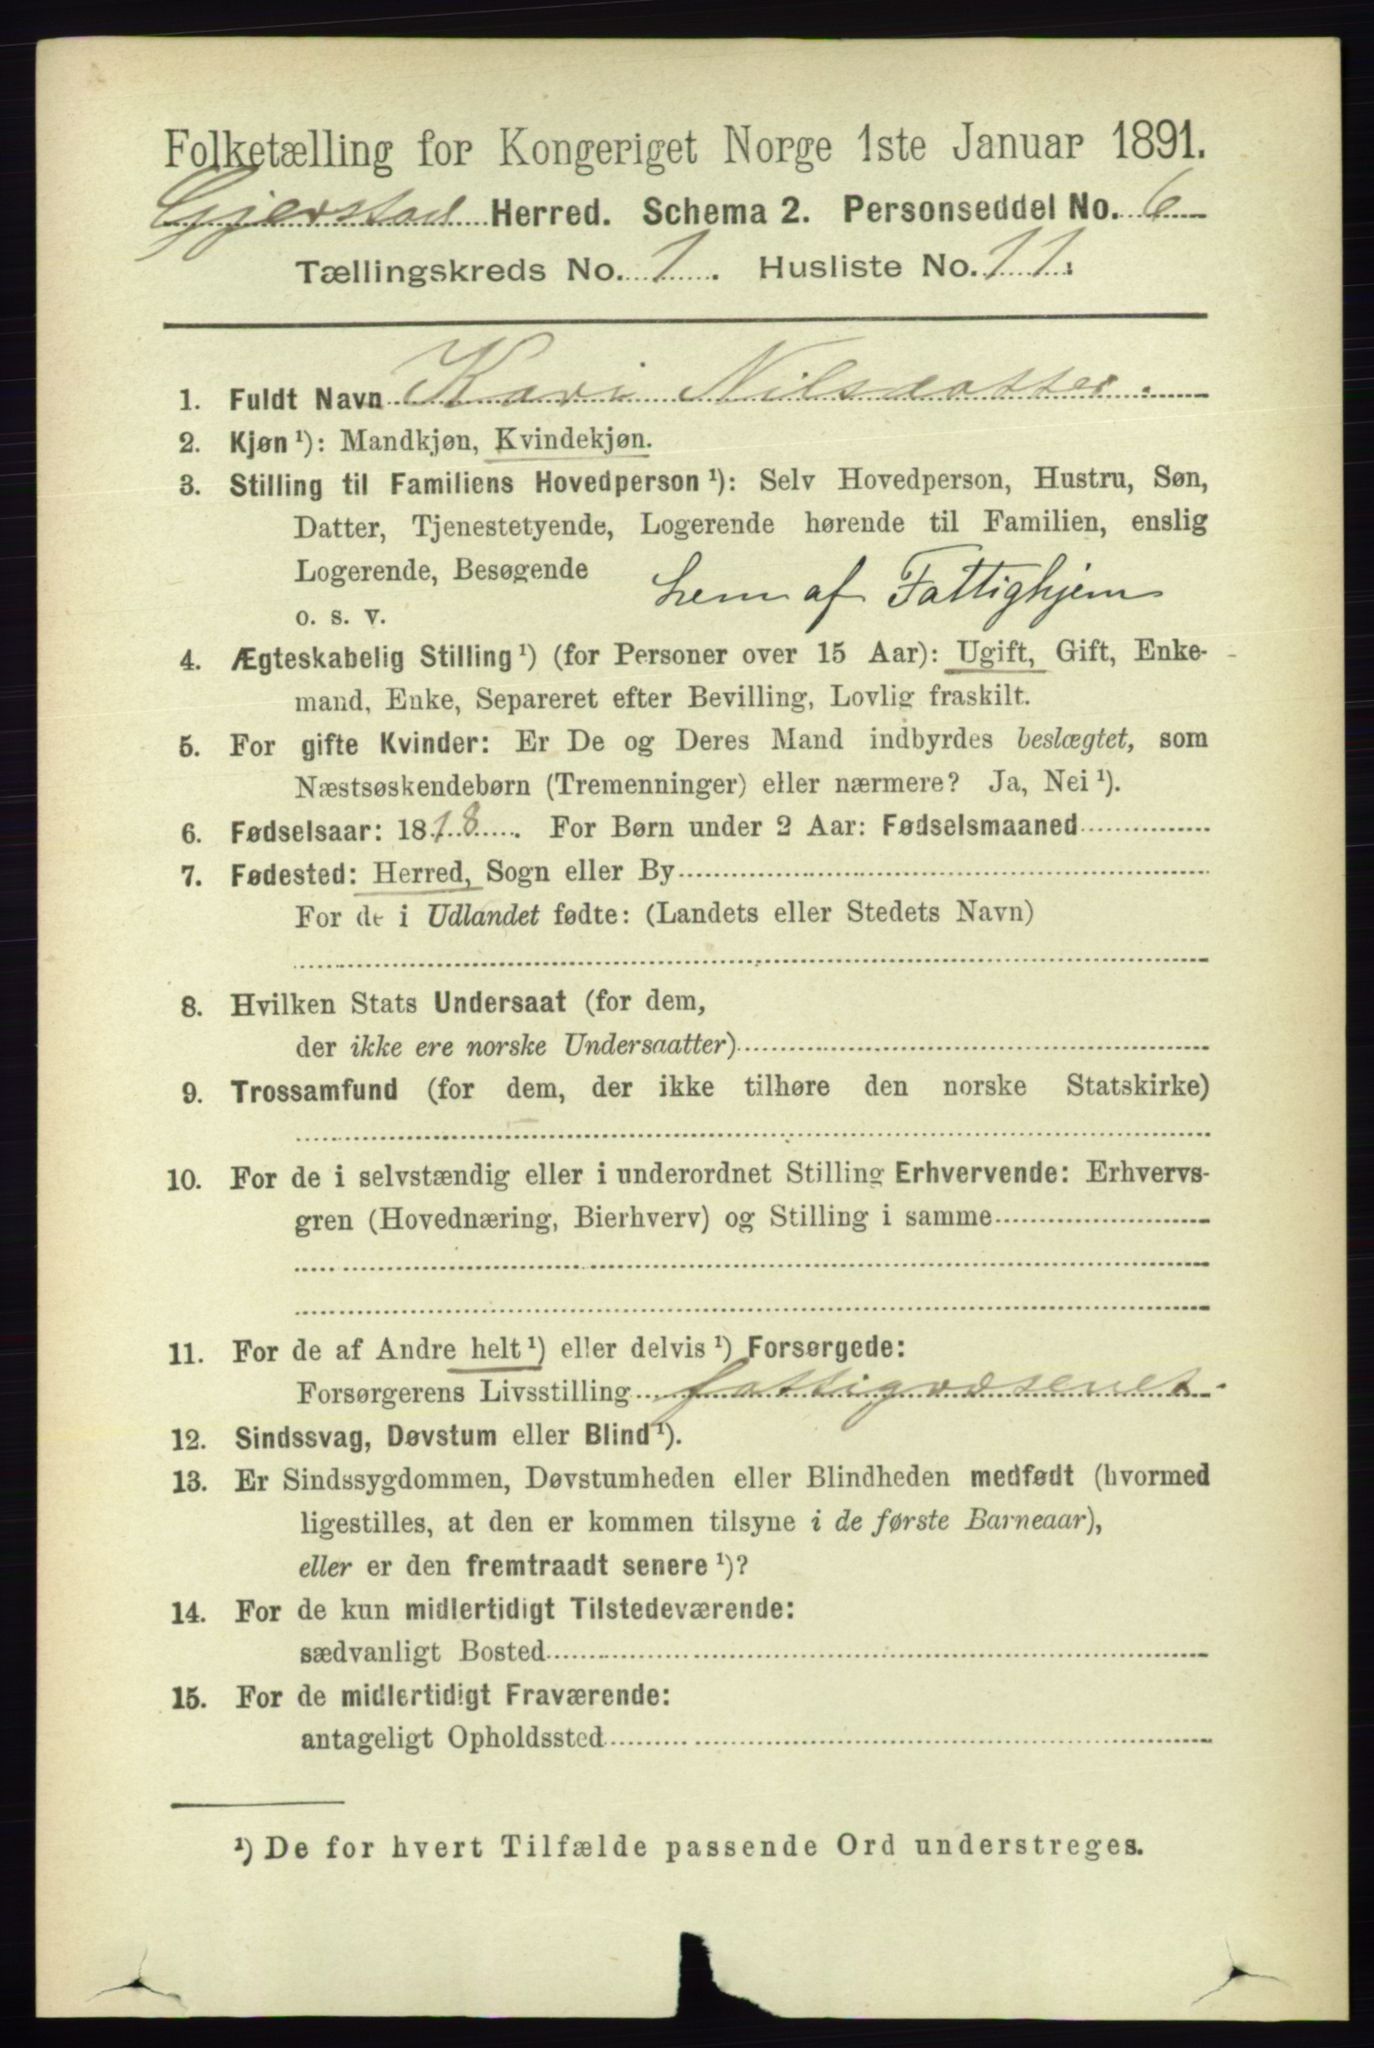 Folketælling for Kongeriget Norge 1ste Januar 1891.
Gjerstad Herred. Schema 2. Personseddel No. 6
Tællingskreds No. 1. Husliste No. 11.
1. Fuldt Navn Kari Nilsdatter.
2. Kjøn ¹): Mandkjøn, Kvindekjøn.
3. Stilling til Familiens Hovedperson ¹): Selv Hovedperson, Hustru, Søn,
Datter, Tjenestetyende, Logerende hørende til Familien, enslig
Logerende, Besøgende
Lem af Fattighjem
o. s. v.
4. Ægteskabelig Stilling ¹) (for Personer over 15 Aar): Ugift, Gift, Enke-
mand, Enke, Separeret efter Bevilling, Lovlig fraskilt.
5. For gifte Kvinder: Er De og Deres Mand indbyrdes beslægtet, som
Næstsøskendebørn (Tremenninger) eller nærmere? Ja, Nei ¹).
6. Fødselsaar: 1818. For Børn under 2 Aar: Fødselsmaaned
7. Fødested: Herred, Sogn eller By
For de i Udlandet fødte: (Landets eller Stedets Navn)
8. Hvilken Stats Undersaat (for dem,
der ikke ere norske Undersaatter)
9. Trossamfund (for dem, der ikke tilhøre den norske Statskirke)
10. For de i selvstændig eller i underordnet Stilling Erhvervende: Erhvervs-
gren (Hovednæring, Bierhverv) og Stilling i samme
11. For de af Andre helt ¹) eller delvis ¹) Forsørgede:
Forsørgerens Livsstilling fattigvæsenet.
12. Sindssvag, Døvstum eller Blind ¹).
13. Er Sindssygdommen, Døvstumheden eller Blindheden medfødt (hvormed
ligestilles, at den er kommen tilsyne i de første Barneaar),
eller er den fremtraadt senere ¹)?
14. For de kun midlertidigt Tilstedeværende:
sædvanligt Bosted
15. For de midlertidigt Fraværende:
antageligt Opholdssted
¹) De for hvert Tilfælde passende Ord understreges.